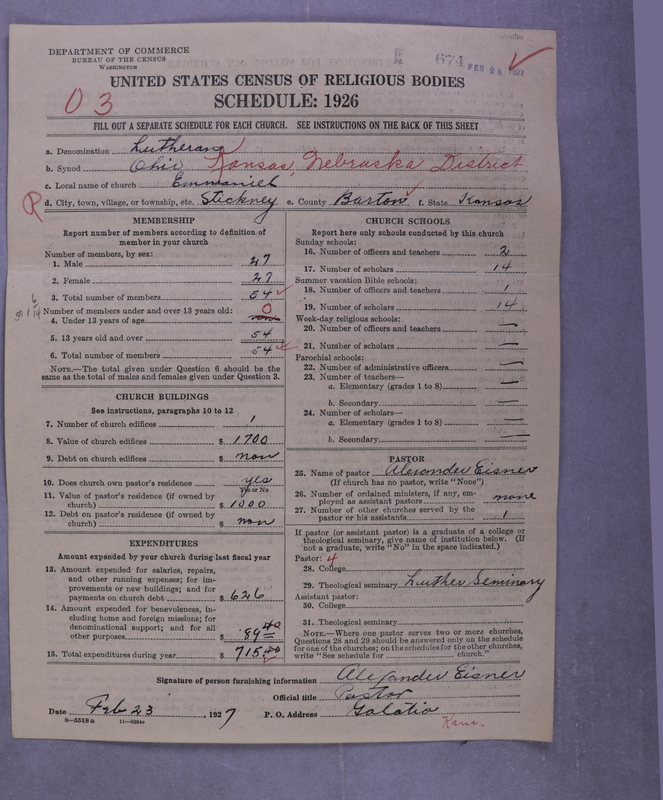 DEPARTMENT OF COMMERCE
BUREAU OF THE CENSUS
WASHINGTON
674 FEB 28 1927
UNITED STATES CENSUS OF RELIGIOUS BODIES
03
SCHEDULE: 1926
FILL OUT A SEPARATE SCHEDULE FOR EACH CHURCH. SEE INSTRUCTIONS ON THE BACK OF THIS SHEET
a. Denomination Lutheran
b. Synod Ohio Kansas, Nebraska District
c. Local name of church Emmaniel
R d. City, town, village, or township, etc. Stickney e. County Barton f. State Kansas
MEMBERSHIP
Report number of members according to definition of
member in your church
Number of members, by sex:
1. Male 27
2. Female 27
3. Total number of members 54
Number of members under and over 13 years old:
4. Under 13 years of age none 0
5. 13 years old and over 54
6. Total number of members 54
NOTE.—The total given under Question 6 should be the
same as the total of males and females given under Question 3.
CHURCH BUILDINGS
See instructions, paragraphs 10 to 12
7. Number of church edifices 1
8. Value of church edifices $ 1700
9. Debt on church edifices $ non
10. Does church own pastor's residence yes
Yes or No
11. Value of pastor's residence (if owned by
church) $ 1000
12. Debt on pastor's residence (if owned by
church) $ non
EXPENDITURES
Amount expended by your church during last fiscal year
13. Amount expended for salaries, repairs,
and other running expenses; for im-
provements or new buildings; and for
payments on church debt $ 626
14. Amount expended for benevolences, in-
cluding home and foreign missions; for
denominational support; and for all
other purposes $ 89 40
15. Total expenditures during year $ 715.40
CHURCH SCHOOLS
Report here only schools conducted by this church
Sunday schools:
16. Number of officers and teachers 2
17. Number of scholars 14
Summer vacation Bible schools:
18. Number of officers and teachers 1
19. Number of scholars 14
Week-day religious schools:
20. Number of officers and teachers —
21. Number of scholars —
Parochial schools:
22. Number of administrative officers —
23. Number of teachers—
a. Elementary (grades 1 to 8) —
b. Secondary —
24. Number of scholars—
a. Elementary (grades 1 to 8) —
b. Secondary —
PASTOR
25. Name of pastor Alexander Eisner
(If church has no pastor, write "None")
26. Number of ordained ministers, if any, em-
ployed as assistant pastors none
27. Number of other churches served by the
pastor or his assistants 1
If pastor (or assistant pastor) is a graduate of a college or
theological seminary, give name of institution below. (If
not a graduate, write "No" in the space indicated.)
Pastor: 4
28. College
29. Theological seminary Luther Seminary
Assistant pastor:
30. College
31. Theological seminary
NOTE.—Where one pastor serves two or more churches,
Questions 28 and 29 should be answered only on the schedule
for one of the churches; on the schedules for the other churches,
write "See schedule for church."
Signature of person furnishing information Alexander Eisner
Official title Pastor
Date Feb 23, 1927 P. O. Address Galatia
Kans.